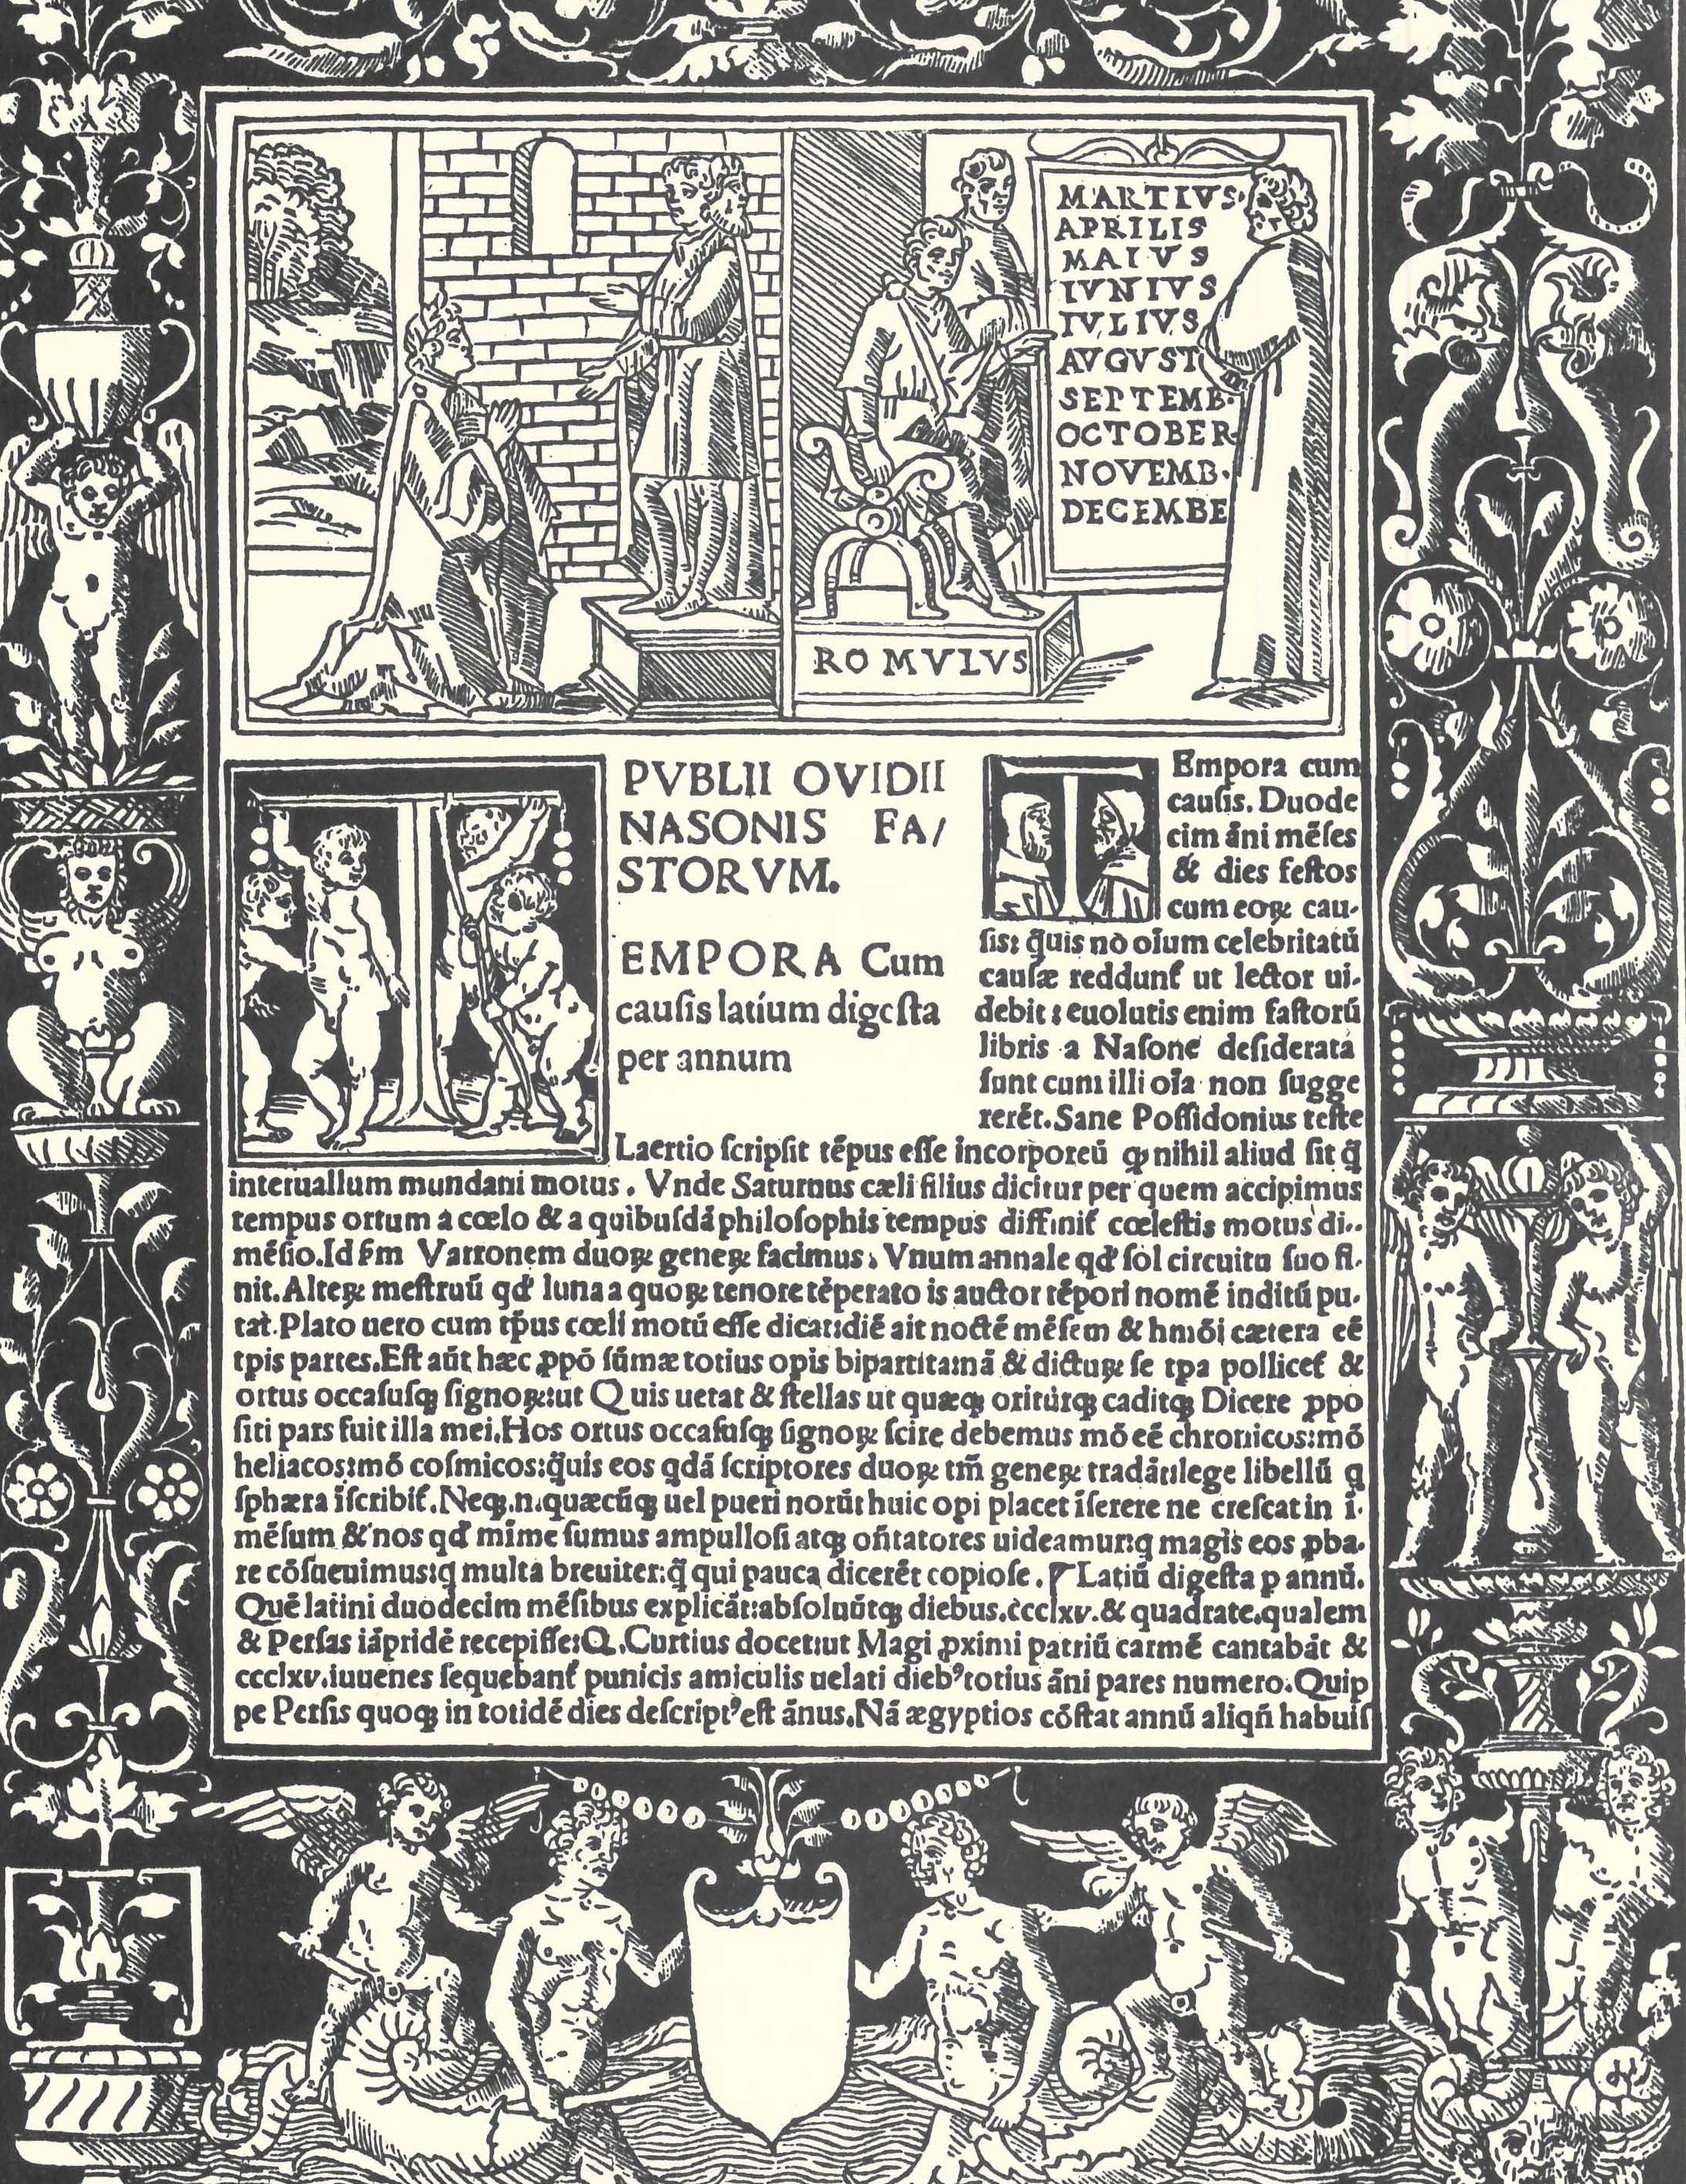 MARTIVS.
APRILIS
MAIVS
IVNIVS
IVLIVS
AVGVST
SEPTEMB.
OCTOBER
NOVEMB.
DECEMBE
ROMVLVS
PVBLII OVIDII
NASONIS FA/
STORVM.
TEMPORA Cum
cauſis latíum digeſta
per annum
TEmpora cum
cauſis. Duode
cim āni mēſes
& dies feſtos
cum eoꝝ cau-
ſis: q̄uis nō oīum celebritatū
cauſæ reddunt᷑ ut lector ui-
debit: euolutis enim faſtorū
libris a Naſone deſiderata
ſunt cum illi oīa non ſugge
rerēt. Sane Poſſidonius teſte
Laertio ſcripſit tēpus eſſe incorporeū ꝙ nihil aliud ſit q̄
interuallum mundani motus. Vnde Saturnus cæli filius dicitur per quem accipimus
tempus ortum a cœlo & a quibuſdā philoſophis tempus diffinit᷑ cœleſtis motus di-
mēſio. Id ẜm Varronem duoꝝ geneꝝ facimus. Vnum annale qd̓ ſol circuitu ſuo fi-
nit. Alteꝝ meſtruū qd̓ luna a quoꝝ tenore tēperato is auctor tēpori nomē inditū pu-
tat. Plato uero cum tp̄us cœli motū eſſe dicat: diē ait noctē mēſem & hmōi cætera eē
tpis partes. Eſt aūt hæc ꝓpō ſūmæ totius opis bipartita: nā & dictuꝝ ſe tpa pollicet᷑ &
ortus occaſuſꝗ ſignoꝝ: ut Quis uetat & ſtellas ut quæꝗ oriturꝗ caditꝗ Dicere ꝓpo
ſiti pars fuit illa mei. Hos ortus occaſuſꝗ ſignoꝝ ſcire debemus mō eē chronicos: mō
heliacos: mō coſmicos: q̄uis eos qdā ſcriptores duoꝝ tm̄ geneꝝ tradāt: lege libellū q
ſphæra īſcribit᷑. Neꝗ.n.quæcūꝗ uel pueri norūt huic opi placet īſerere ne creſcat in ī-
mēſum & nos qd̓ mīme ſumus ampulloſi atꝗ oñtatores uideamur: q magis eos ꝓba-
re cōſueuimus: q multa breuiter: q̄ qui pauca dicerēt copioſe. ¶ Latiū digeſta p annū.
Quē latini duodecim mēſibus explicāt: abſoluūtꝗ diebus.ccclxv. & quadrate. qualem
& Perſas iāpridē recepiſſe: Q. Curtius docet: ut Magi ꝓximi patriū carmē cantabāt &
ccclxv. iuuenes ſequebant᷑ punicis amiculis uelati dieb⁹ totius āni pares numero. Quip
pe Perſis quoꝗ in totidē dies deſcript⁹ eſt ānus. Nā ægyptios cōſtat annū aliqñ habuiſ